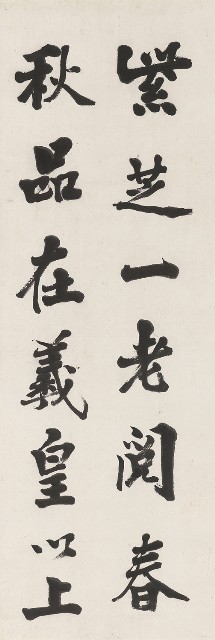 紫芝一老閱春
秋品在羲皇以上